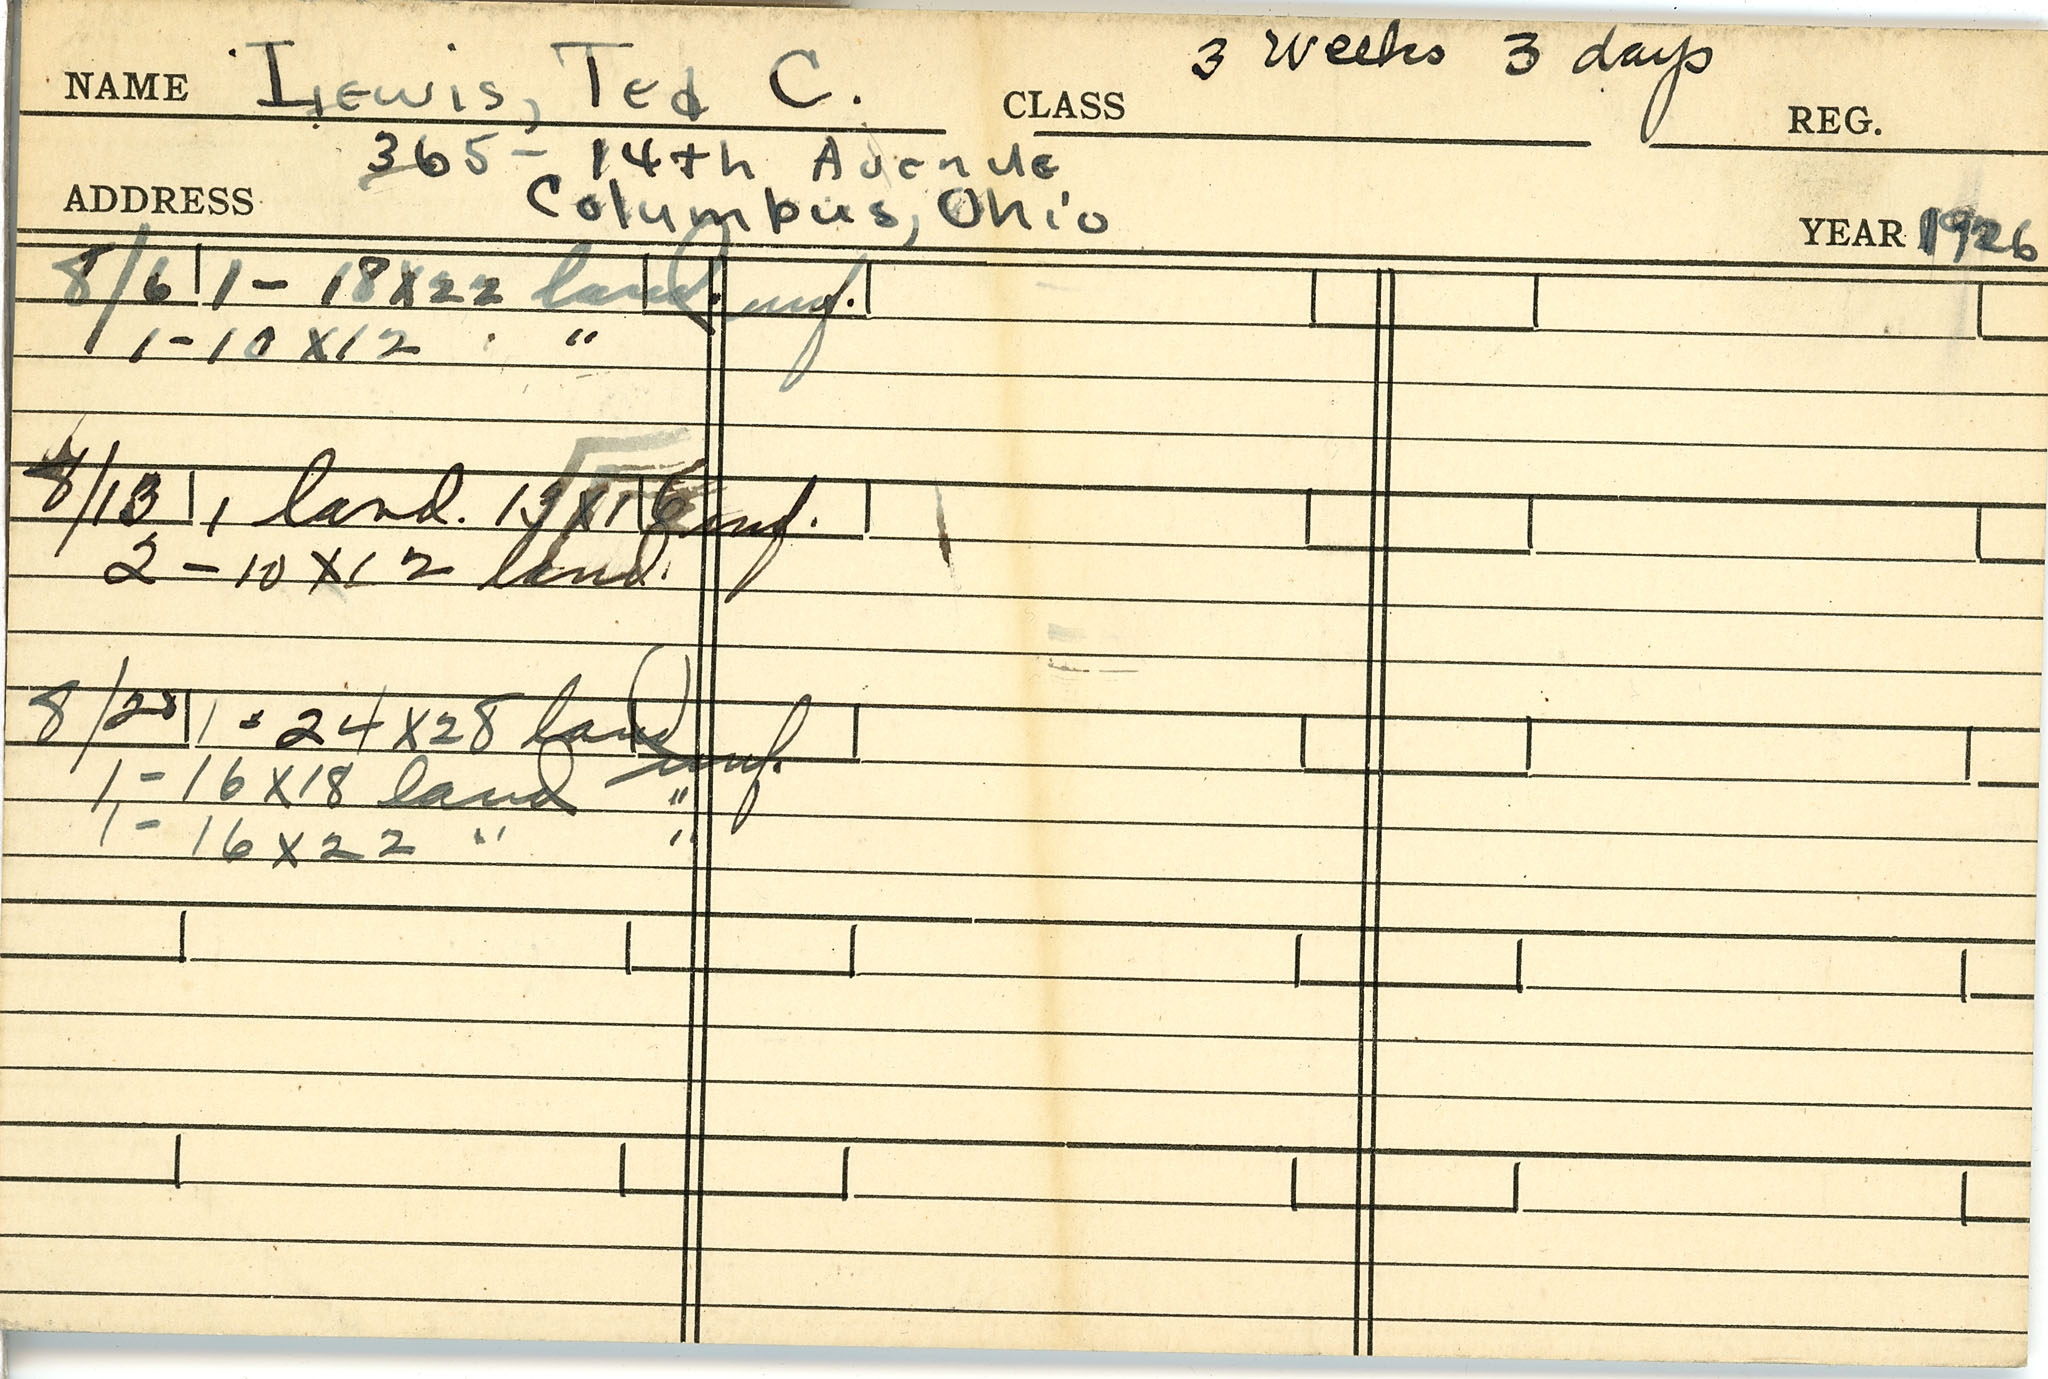 3 weeks 3 days
NAME Lewis, Ted C. CLASS REG.
365 - 14th Avenue
ADDRESS Columbus, Ohio YEAR 1926
8/6 1 - 18x22 land. unf.
1 - 10x12 "
8/13 1 land. 13x16 unf.
2 - 10x12 land.
8/20 1 - 24x28 land unf.
1 - 16x18 land "
1 - 16x22 " "